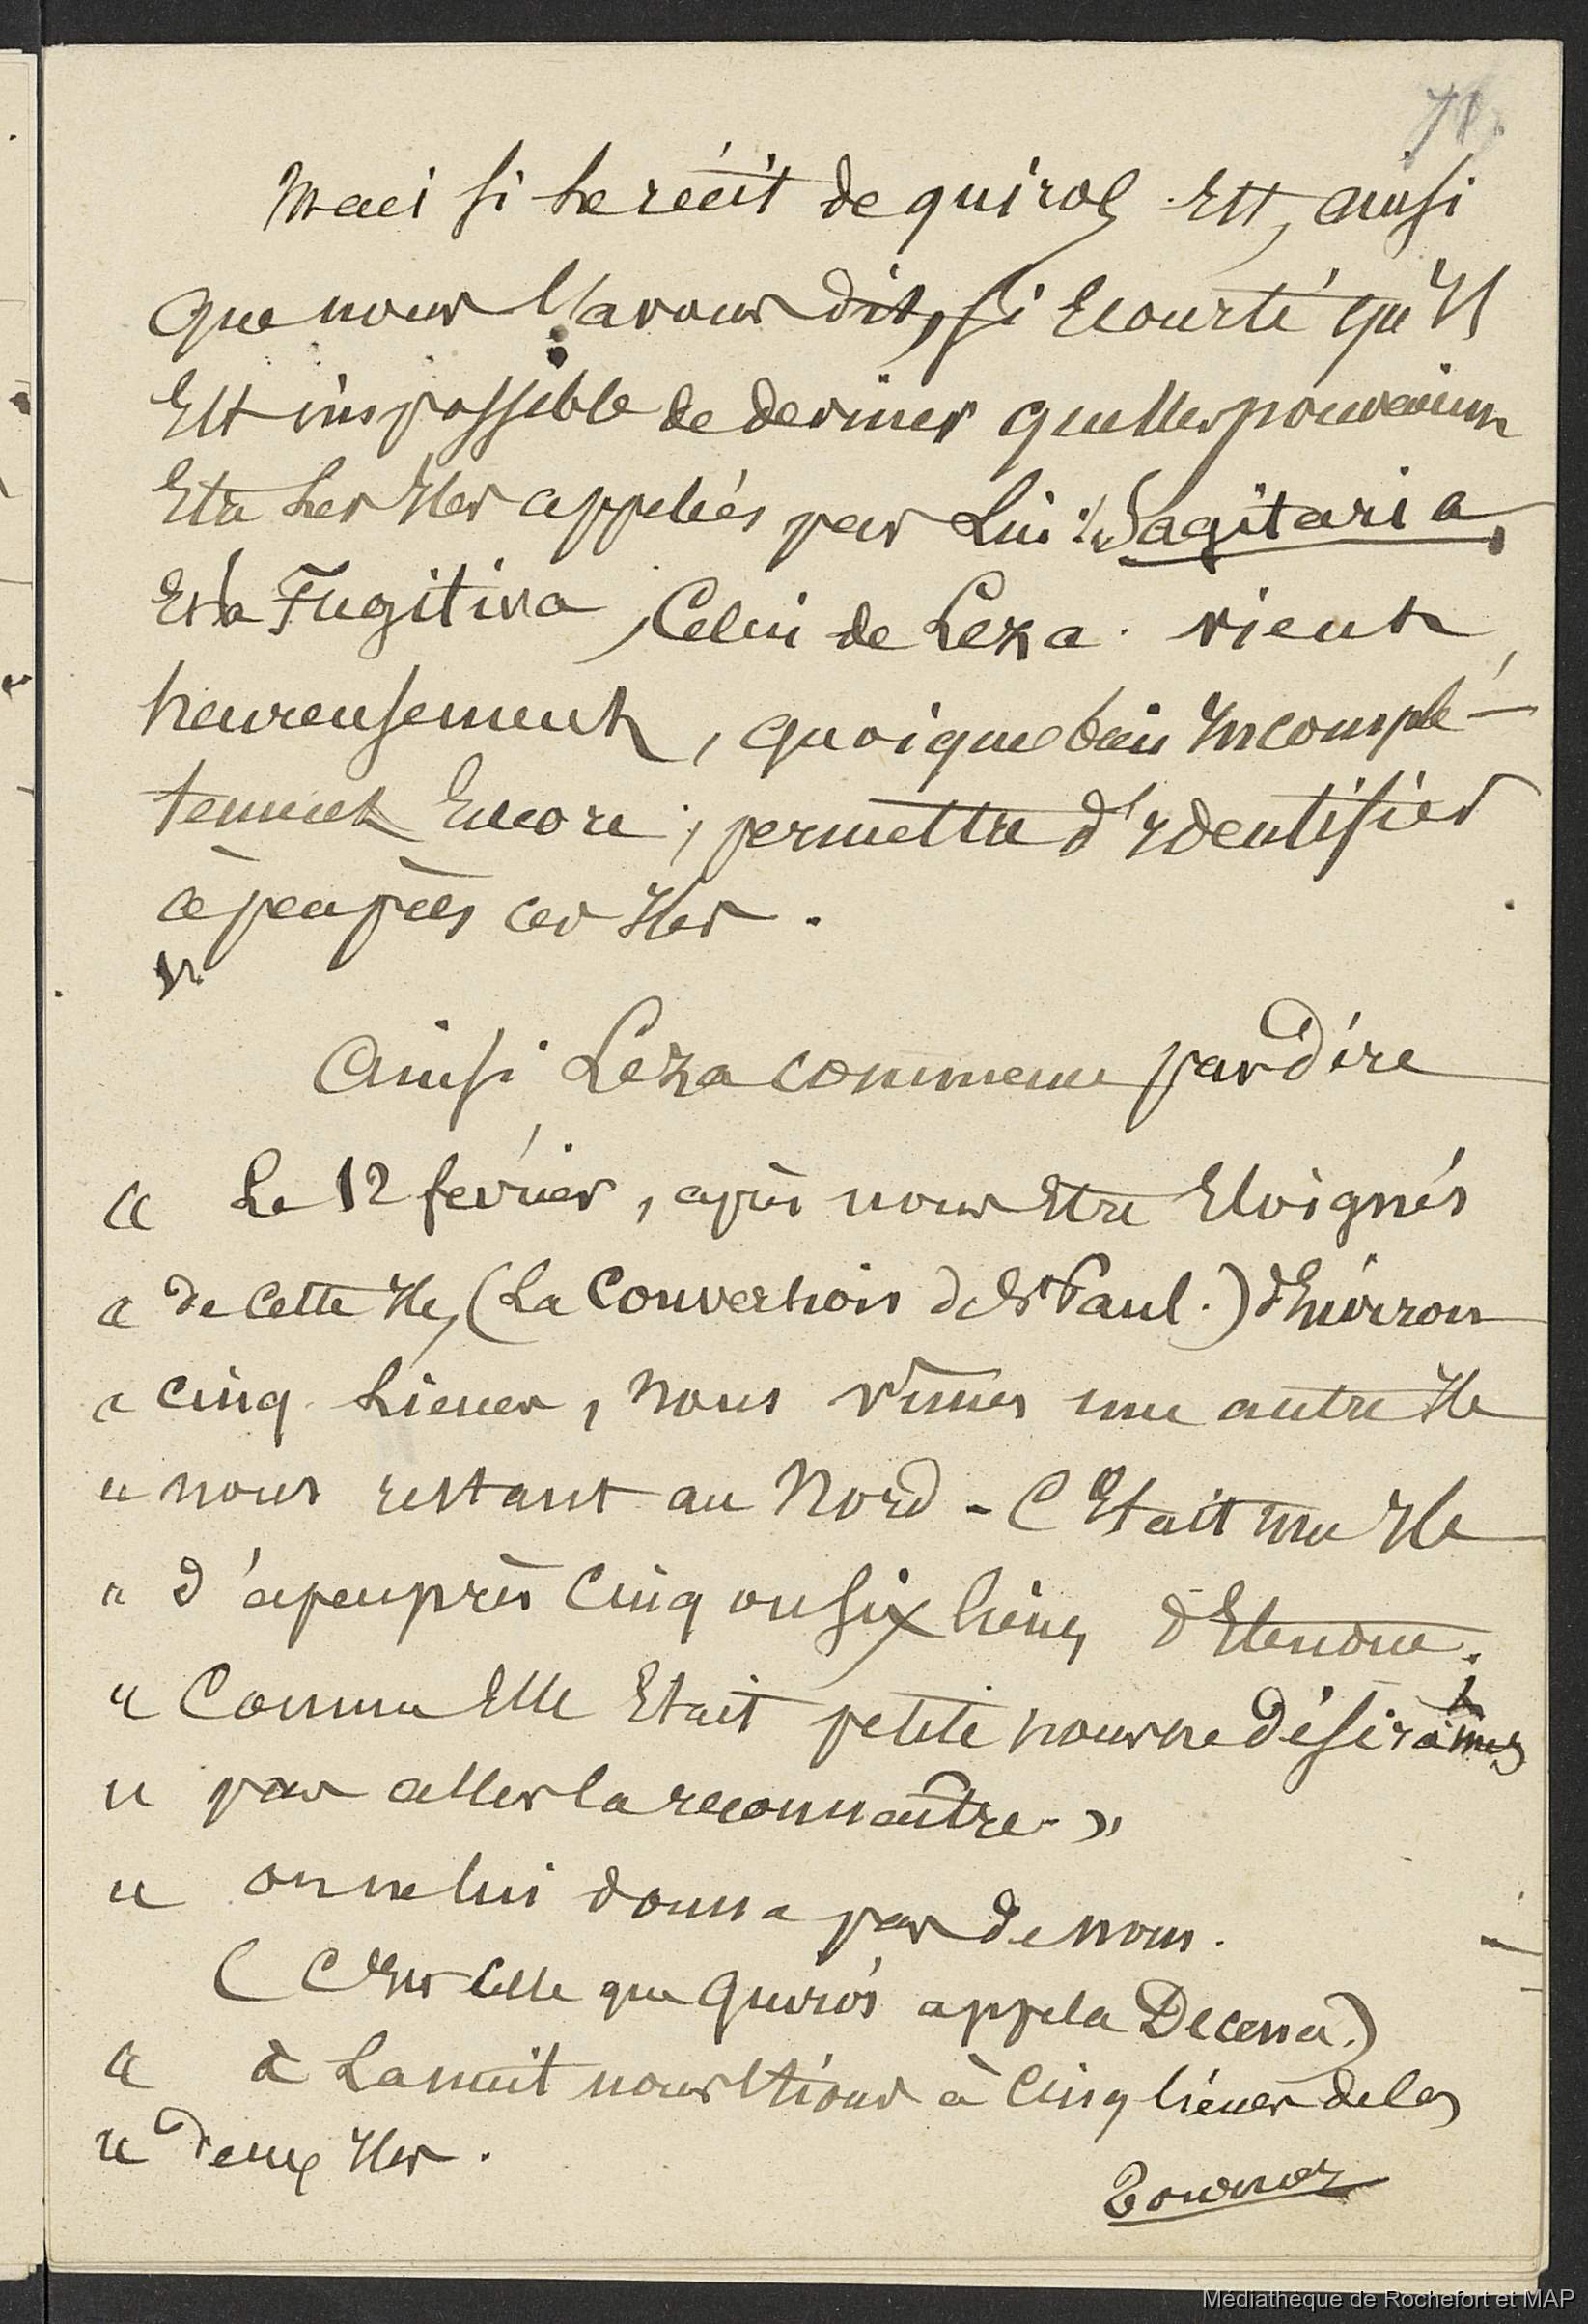 71.
Mais si Le récit de quiros Est, ainsi
que nous l'avons dit, si Ecourté qu'Il
Est impossible de deviner quelles pouvaient
Etre Les Iles appelées par Lui : Sagitaria,
Et la Fugitiva, Celui de Leza. vient
heureusement, quoique bien Incomplé-
tement Encore, permettre d'Identifier
à peu près ces Iles.
Ainsi Leza commence par dire
« Le 12 février, après nous Etre Eloignés
« de Cette Ile, (La Conversion de St Paul.) d'Environ
« cinq Lieues, nous vîmes une autre Ile
« nous restant au Nord - C'Etait une Ile
« d'apeuprès Cinq ou six lieues d'Etendue.
« Comme Elle Etait petite nous ne désirâmes
« pas aller la reconnaître. »
« on ne lui donna pas de nom.
(C'Est celle que Quiros appela Decena.)
« à La nuit nous Etions à Cinq lieues de les
« deux Iles.
Tournez
Médiathèque de Rochefort et MAP